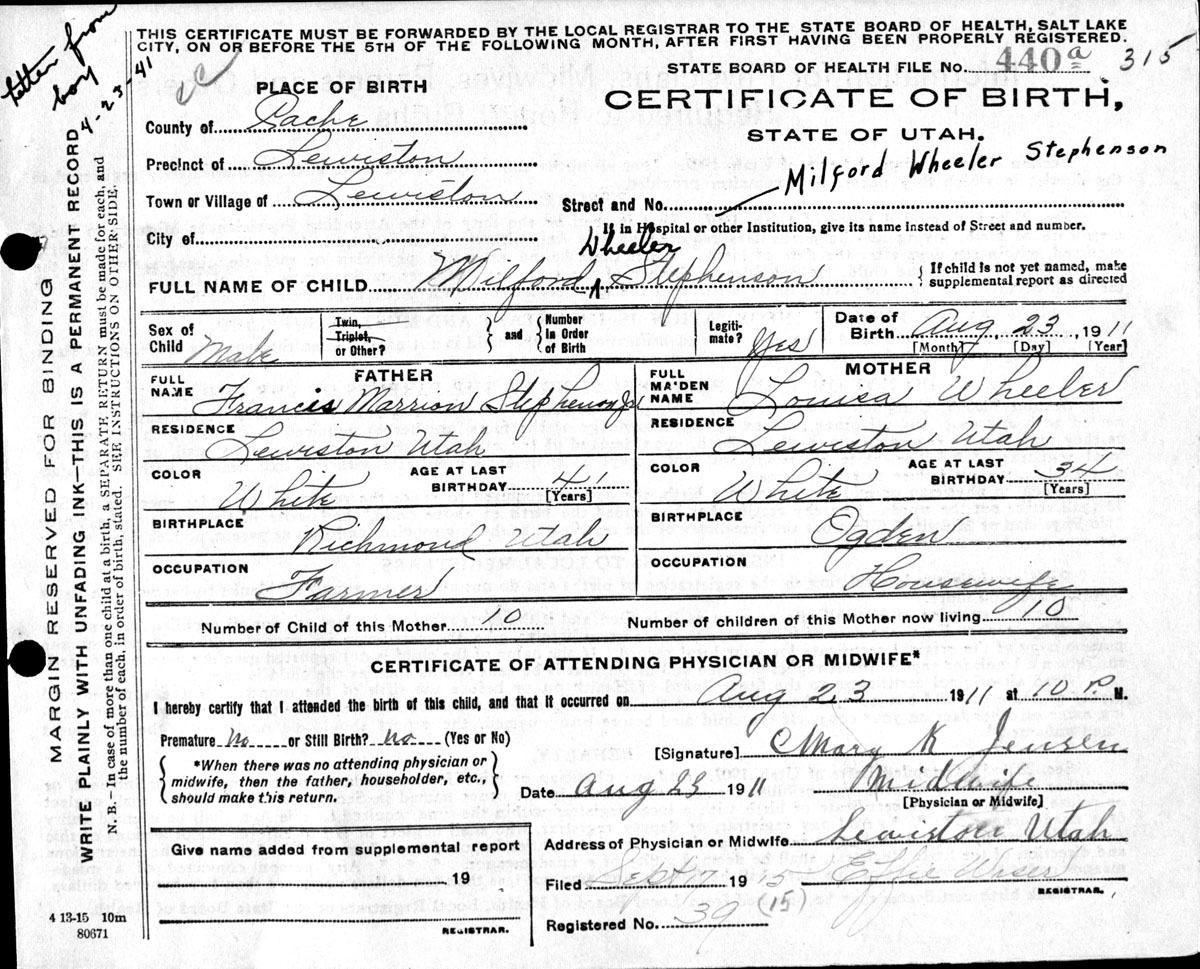 letter from
boy 4-23-41
THIS CERTIFICATE MUST BE FORWARDED BY THE LOCAL REGISTRAR TO THE STATE BOARD OF HEALTH, SALT LAKE
CITY, ON OR BEFORE THE 5TH OF THE FOLLOWING MONTH, AFTER FIRST HAVING BEEN PROPERLY REGISTERED.
STATE BOARD OF HEALTH FILE No. 440a 315
PLACE OF BIRTH
CERTIFICATE OF BIRTH,
County of Cache
STATE OF UTAH.
Precinct of Lewiston
Milford Wheeler Stephenson
Town or Village of Lewiston Street and No.
City of If in Hospital or other Institution, give its name instead of Street and number.
Wheeler
FULL NAME OF CHILD Milford ^ Stephenson { If child is not yet named, make supplemental report as directed
Sex of Child Male Twin, Triplet, or Other? } and { Number in Order of Birth Legiti-mate? Yes Date of Birth Aug 23 1911
[Month] [Day] [Year]
FATHER MOTHER
FULL NAME Francis Marrion Stephenson Jr FULL MAIDEN NAME Louisa Wheeler
RESIDENCE Lewiston Utah RESIDENCE Lewiston Utah
COLOR White AGE AT LAST BIRTHDAY 41 [Years] COLOR White AGE AT LAST BIRTHDAY 34 [Years]
BIRTHPLACE Richmond Utah BIRTHPLACE Ogden
OCCUPATION Farmer OCCUPATION Housewife
Number of Child of this Mother 10 Number of children of this Mother now living 10
CERTIFICATE OF ATTENDING PHYSICIAN OR MIDWIFE*
I hereby certify that I attended the birth of this child, and that it occurred on Aug 23 1911 at 10 P. M.
Premature No or Still Birth? No (Yes or No)
[Signature] Mary K Jensen
{ *When there was no attending physician or midwife, then the father, householder, etc., should make this return. }
Date Aug 23 1911 Midwife
[Physician or Midwife]
Give name added from supplemental report
Address of Physician or Midwife Lewiston Utah
19
Filed Sept 17 1915 Effie Waser
REGISTRAR.
Registered No. 39 (15)
REGISTRAR.
4 13-15 10m
80671
MARGIN RESERVED FOR BINDING
WRITE PLAINLY WITH UNFADING INK—THIS IS A PERMANENT RECORD
N. B.—In case of more than one child at a birth, a SEPARATE RETURN must be made for each, and
the number of each, in order of birth, stated. SEE INSTRUCTIONS ON OTHER SIDE.